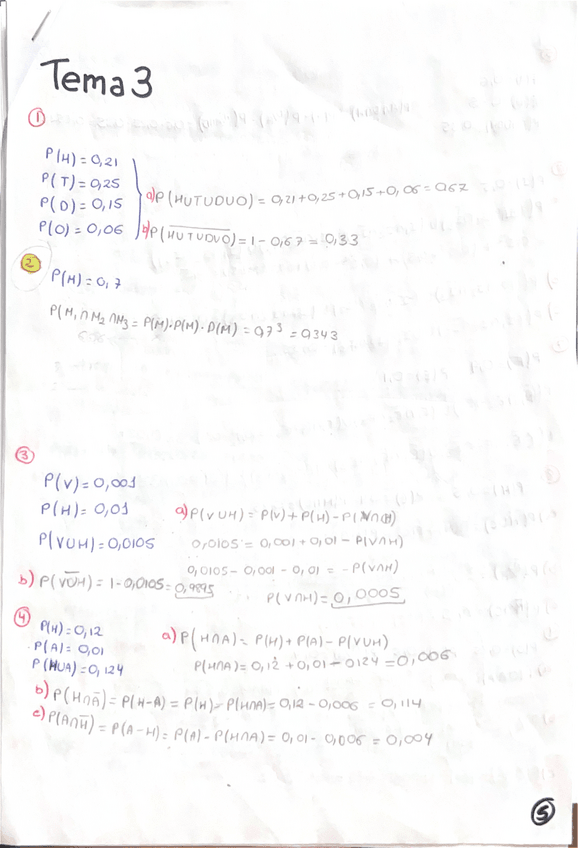 Tema 3
①
P(H) = 0,21
P(T) = 0,25
P(D) = 0,15
P(O) = 0,06
a) P(HUTUDUO) = 0,21+0,25+0,15+0,06 = 0,67
b) P(\overline{HUTUDUO}) = 1 - 0,67 = 0,33
②
P(H) = 0,7
P(H₁∩H₂∩H₃ = P(H)·P(H)·P(H) = 0,7³ = 0,343
③
P(V) = 0,001
P(H) = 0,01
P(VUH) = 0,0105
a) P(VUH) = P(V) + P(H) - P(V∩H)
0,0105 = 0,001 + 0,01 - P(V∩H)
0,0105 - 0,001 - 0,01 = - P(V∩H)
P(V∩H) = 0,0005
b) P(\overline{VUH}) = 1 - 0,0105 = 0,9895
④
P(H) = 0,12
P(A) = 0,01
P(HUA) = 0,124
a) P(H∩A) = P(H) + P(A) - P(VUH)
P(H∩A) = 0,12 + 0,01 - 0,124 = 0,006
b) P(H∩\overline{A}) = P(H-A) = P(H) - P(H∩A) = 0,12 - 0,006 = 0,114
c) P(A∩\overline{H}) = P(A-H) = P(A) - P(H∩A) = 0,01 - 0,006 = 0,004
⑤